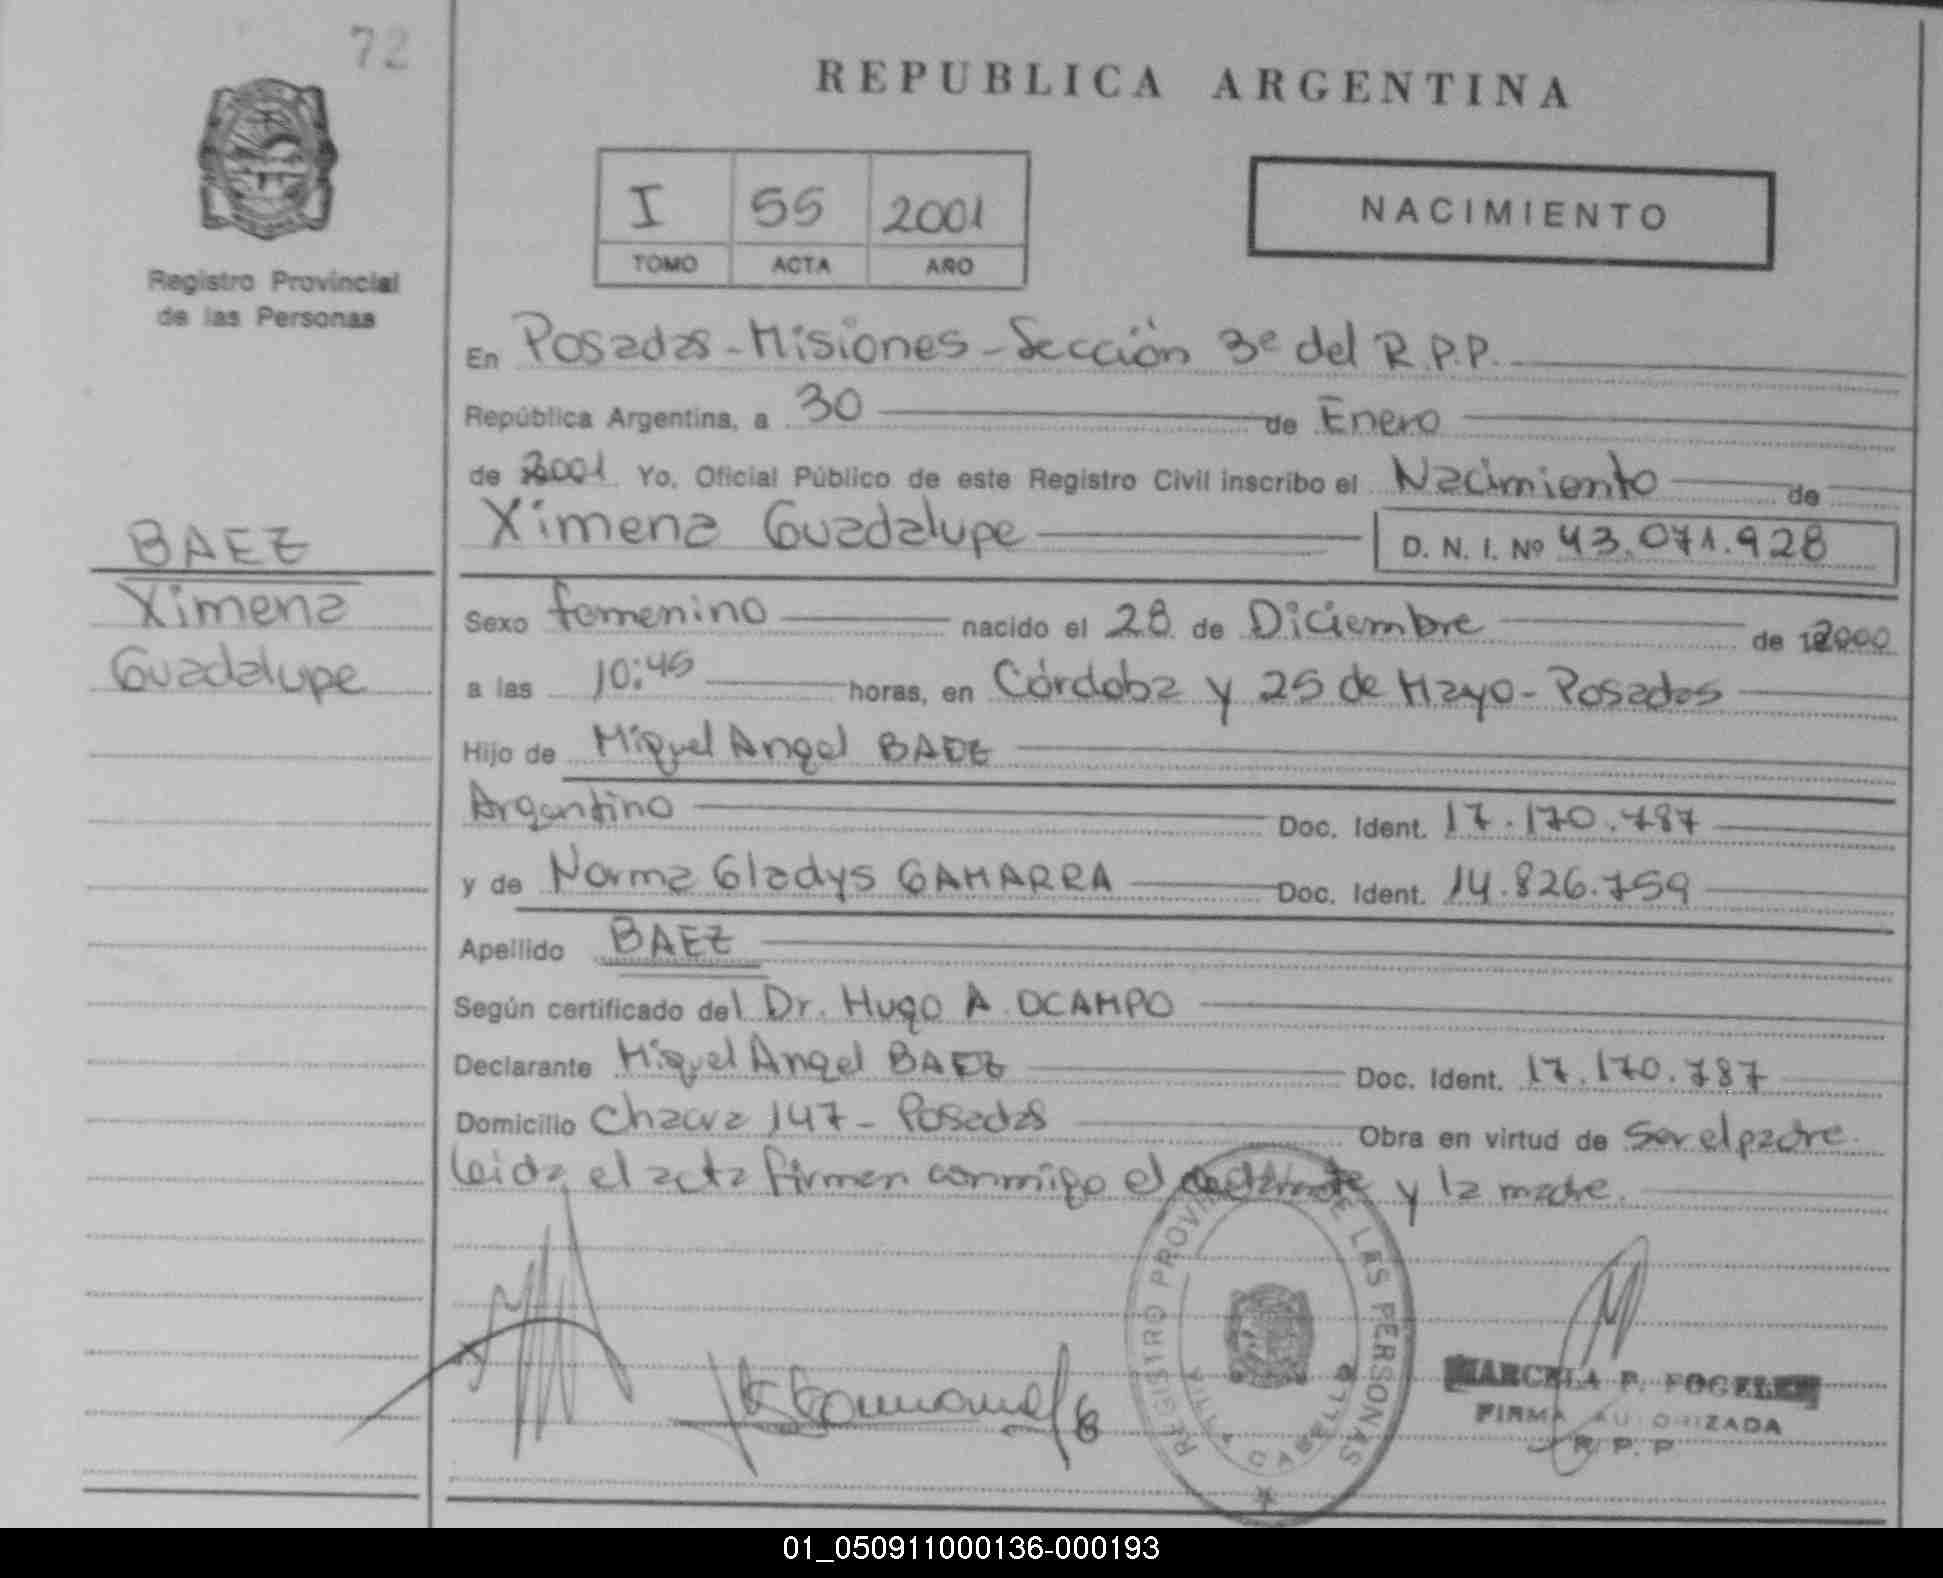 72
REPUBLICA ARGENTINA
I 55 2001
TOMO ACTA AÑO
NACIMIENTO
Registro Provincial
de las Personas
En Posadas - Misiones - Sección 3ª del R.P.P.
República Argentina, a 30 de Enero
de 2001. Yo, Oficial Público de este Registro Civil inscribo el Nacimiento de
Ximena Guadalupe D. N. I. Nº 43.071.928
BAEZ
Ximena
Guadalupe
Sexo femenino nacido el 28 de Diciembre de 2000
a las 10:45 horas, en Córdoba y 25 de Mayo - Posadas
Hijo de Miguel Angel BAEZ
Argentino Doc. Ident. 17.170.787
y de Norma Gladys GAMARRA Doc. Ident. 14.826.759
Apellido BAEZ
Según certificado del Dr. Hugo A. OCAMPO
Declarante Miguel Angel BAEZ Doc. Ident. 17.170.787
Domicilio Chacra 147 - Posadas Obra en virtud de Ser el padre.
Leida el acta firman conmigo el declarante y la madre.
REGISTRO PROVINCIAL DE LAS PERSONAS
MARCELA P. FOGELER
FIRMA AUTORIZADA
R. P. P.
01_050911000136-000193